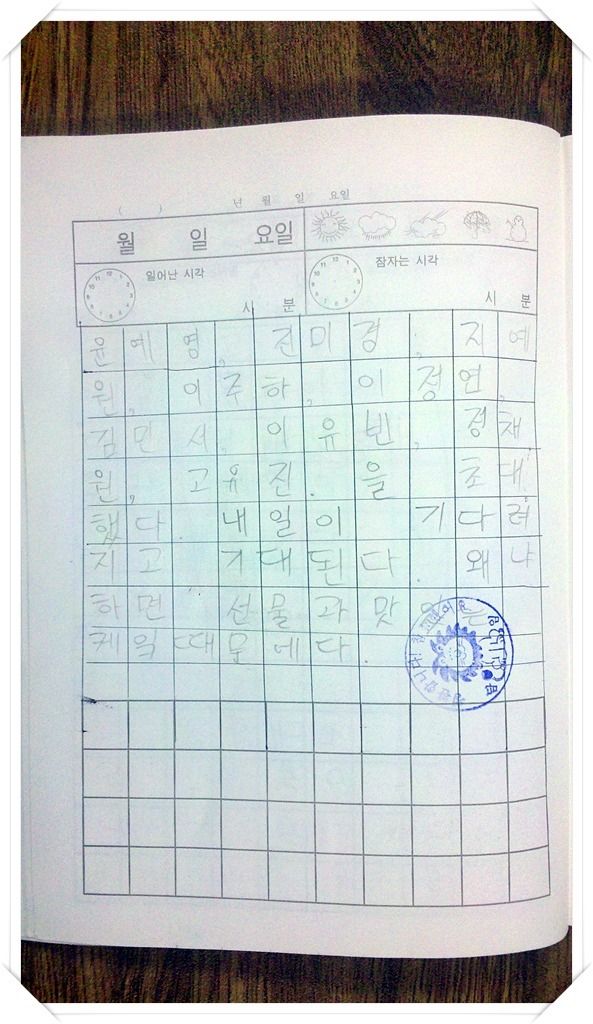 ( ) 년 월 일 요일
월 일 요일
일어난 시각 잠자는 시각
시 분 시 분
윤예영, 진미경, 지예
원, 이주하, 이정연,
김민서, 이유빈, 정채
원, 고유진. 을 초대
했다. 내일이 기다려
지고 기대된다. 왜냐
하면 선물과 맛있는
케잌때문에다.